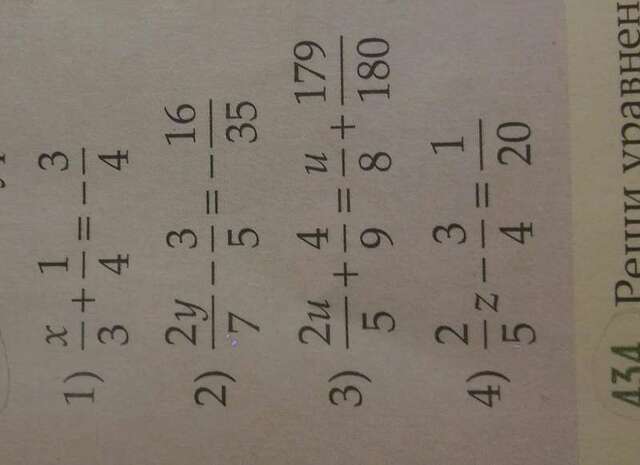 1) x/3 + 1/4 = -3/4
2) 2y/7 - 3/5 = -16/35
3) 2u/5 + 4/9 = u/8 + 179/180
4) 2/5 z - 3/4 = 1/20
434 Реши уравнен